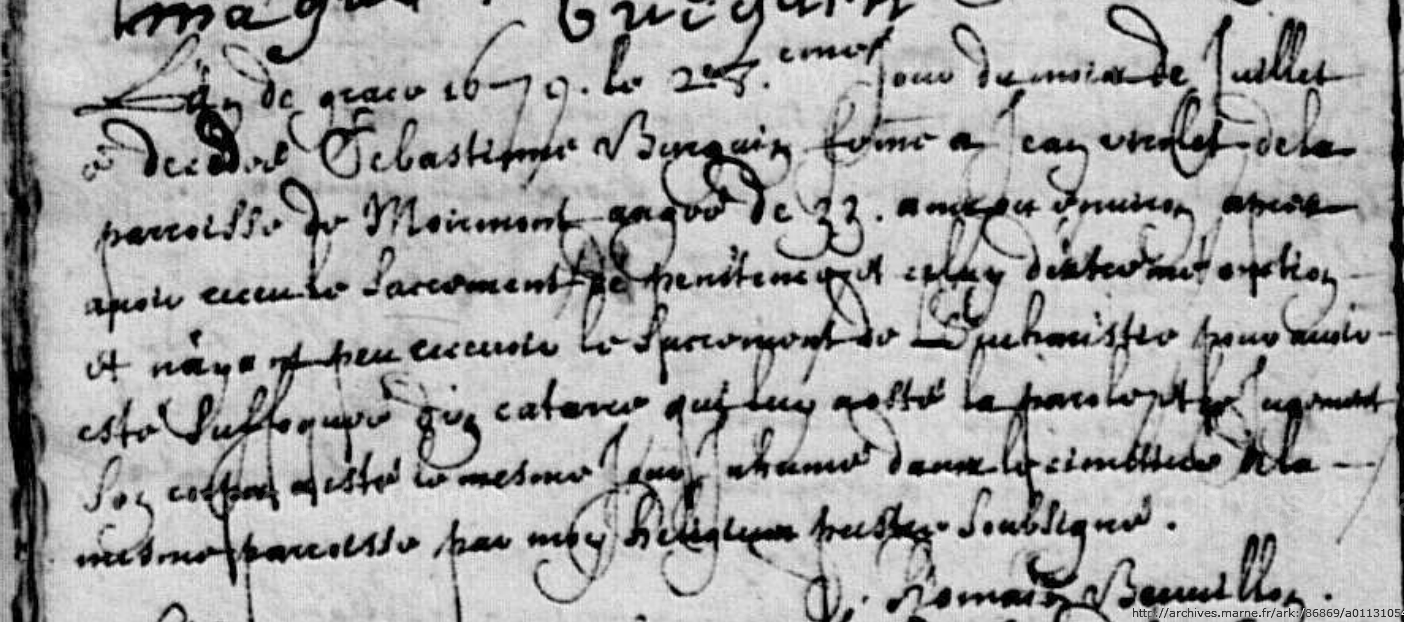 L'an de grace 1679. le jour du mois de Juillet
decedée Sebastienne Burquin feme a Jean de la
parroisse de Moirmont aagée de 33. ans ou environ apres
avoir receu le sacrement de penitence et celuy d'extreme onction
et n'ayant peu recevoir le sacrement de L'euchaistie pour avoir
esté suffoquée d'un catarre qui luy a osté la parole et le Jugement
son corps a esté le mesme Jour Inhumé dans le cimetiere de la
mesme parroisse par moy Religieux prestre soubsigné.
Romain Beuvillon.
http://archives.marne.fr/ark:/86869/a0113105